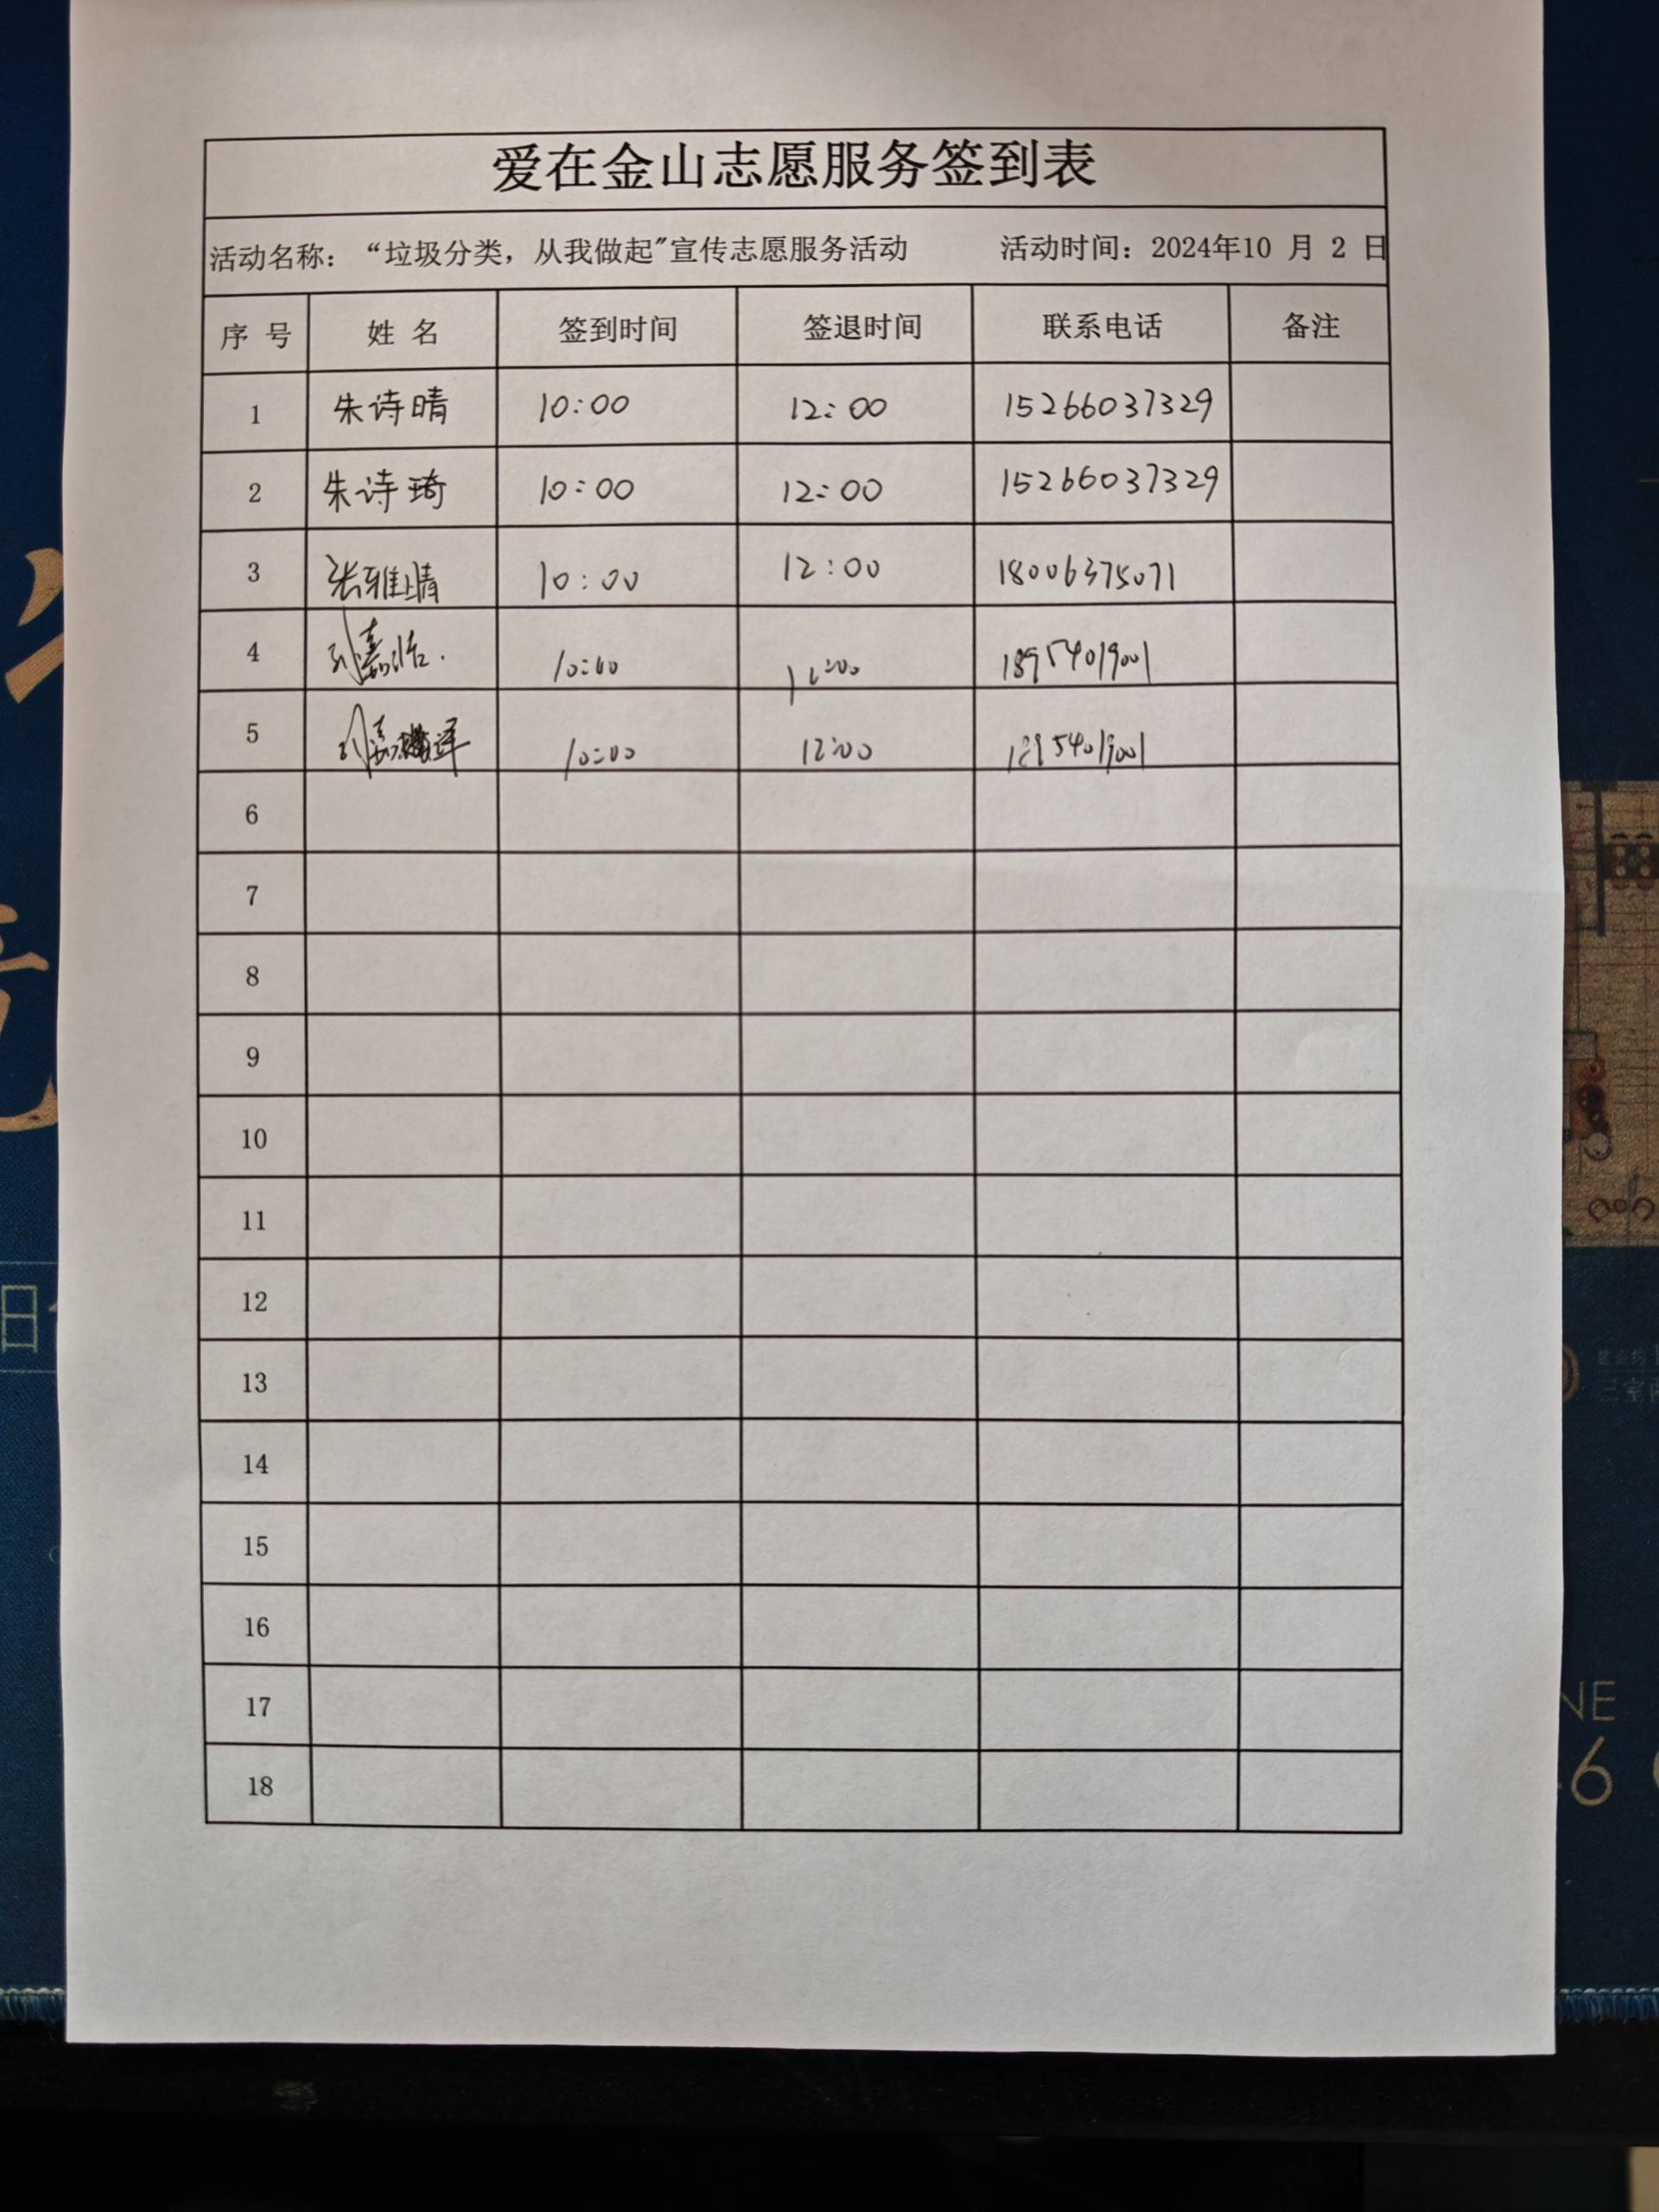 爱在金山志愿服务签到表
活动名称：“垃圾分类，从我做起”宣传志愿服务活动 活动时间：2024年10 月 2 日
序 号 姓 名 签到时间 签退时间 联系电话 备注
1 朱诗晴 10:00 12:00 15266037329
2 朱诗琦 10:00 12:00 15266037329
3 张雅晴 10:00 12:00 18006375071
4 10:00 12:00 18954019001
5 10:00 12:00 18954019001
6
7
8
9
10
11
12
13
14
15
16
17
18
NE
6